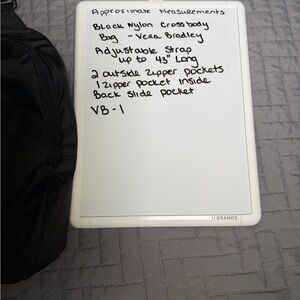 Approximate Measurements
Black Nylon Crossbody
Bag - Vera Bradley
Adjustable Strap
up to 43" Long
2 outside zipper pockets
1 zipper pocket inside
Back slide pocket
VB-1
U BRANDS